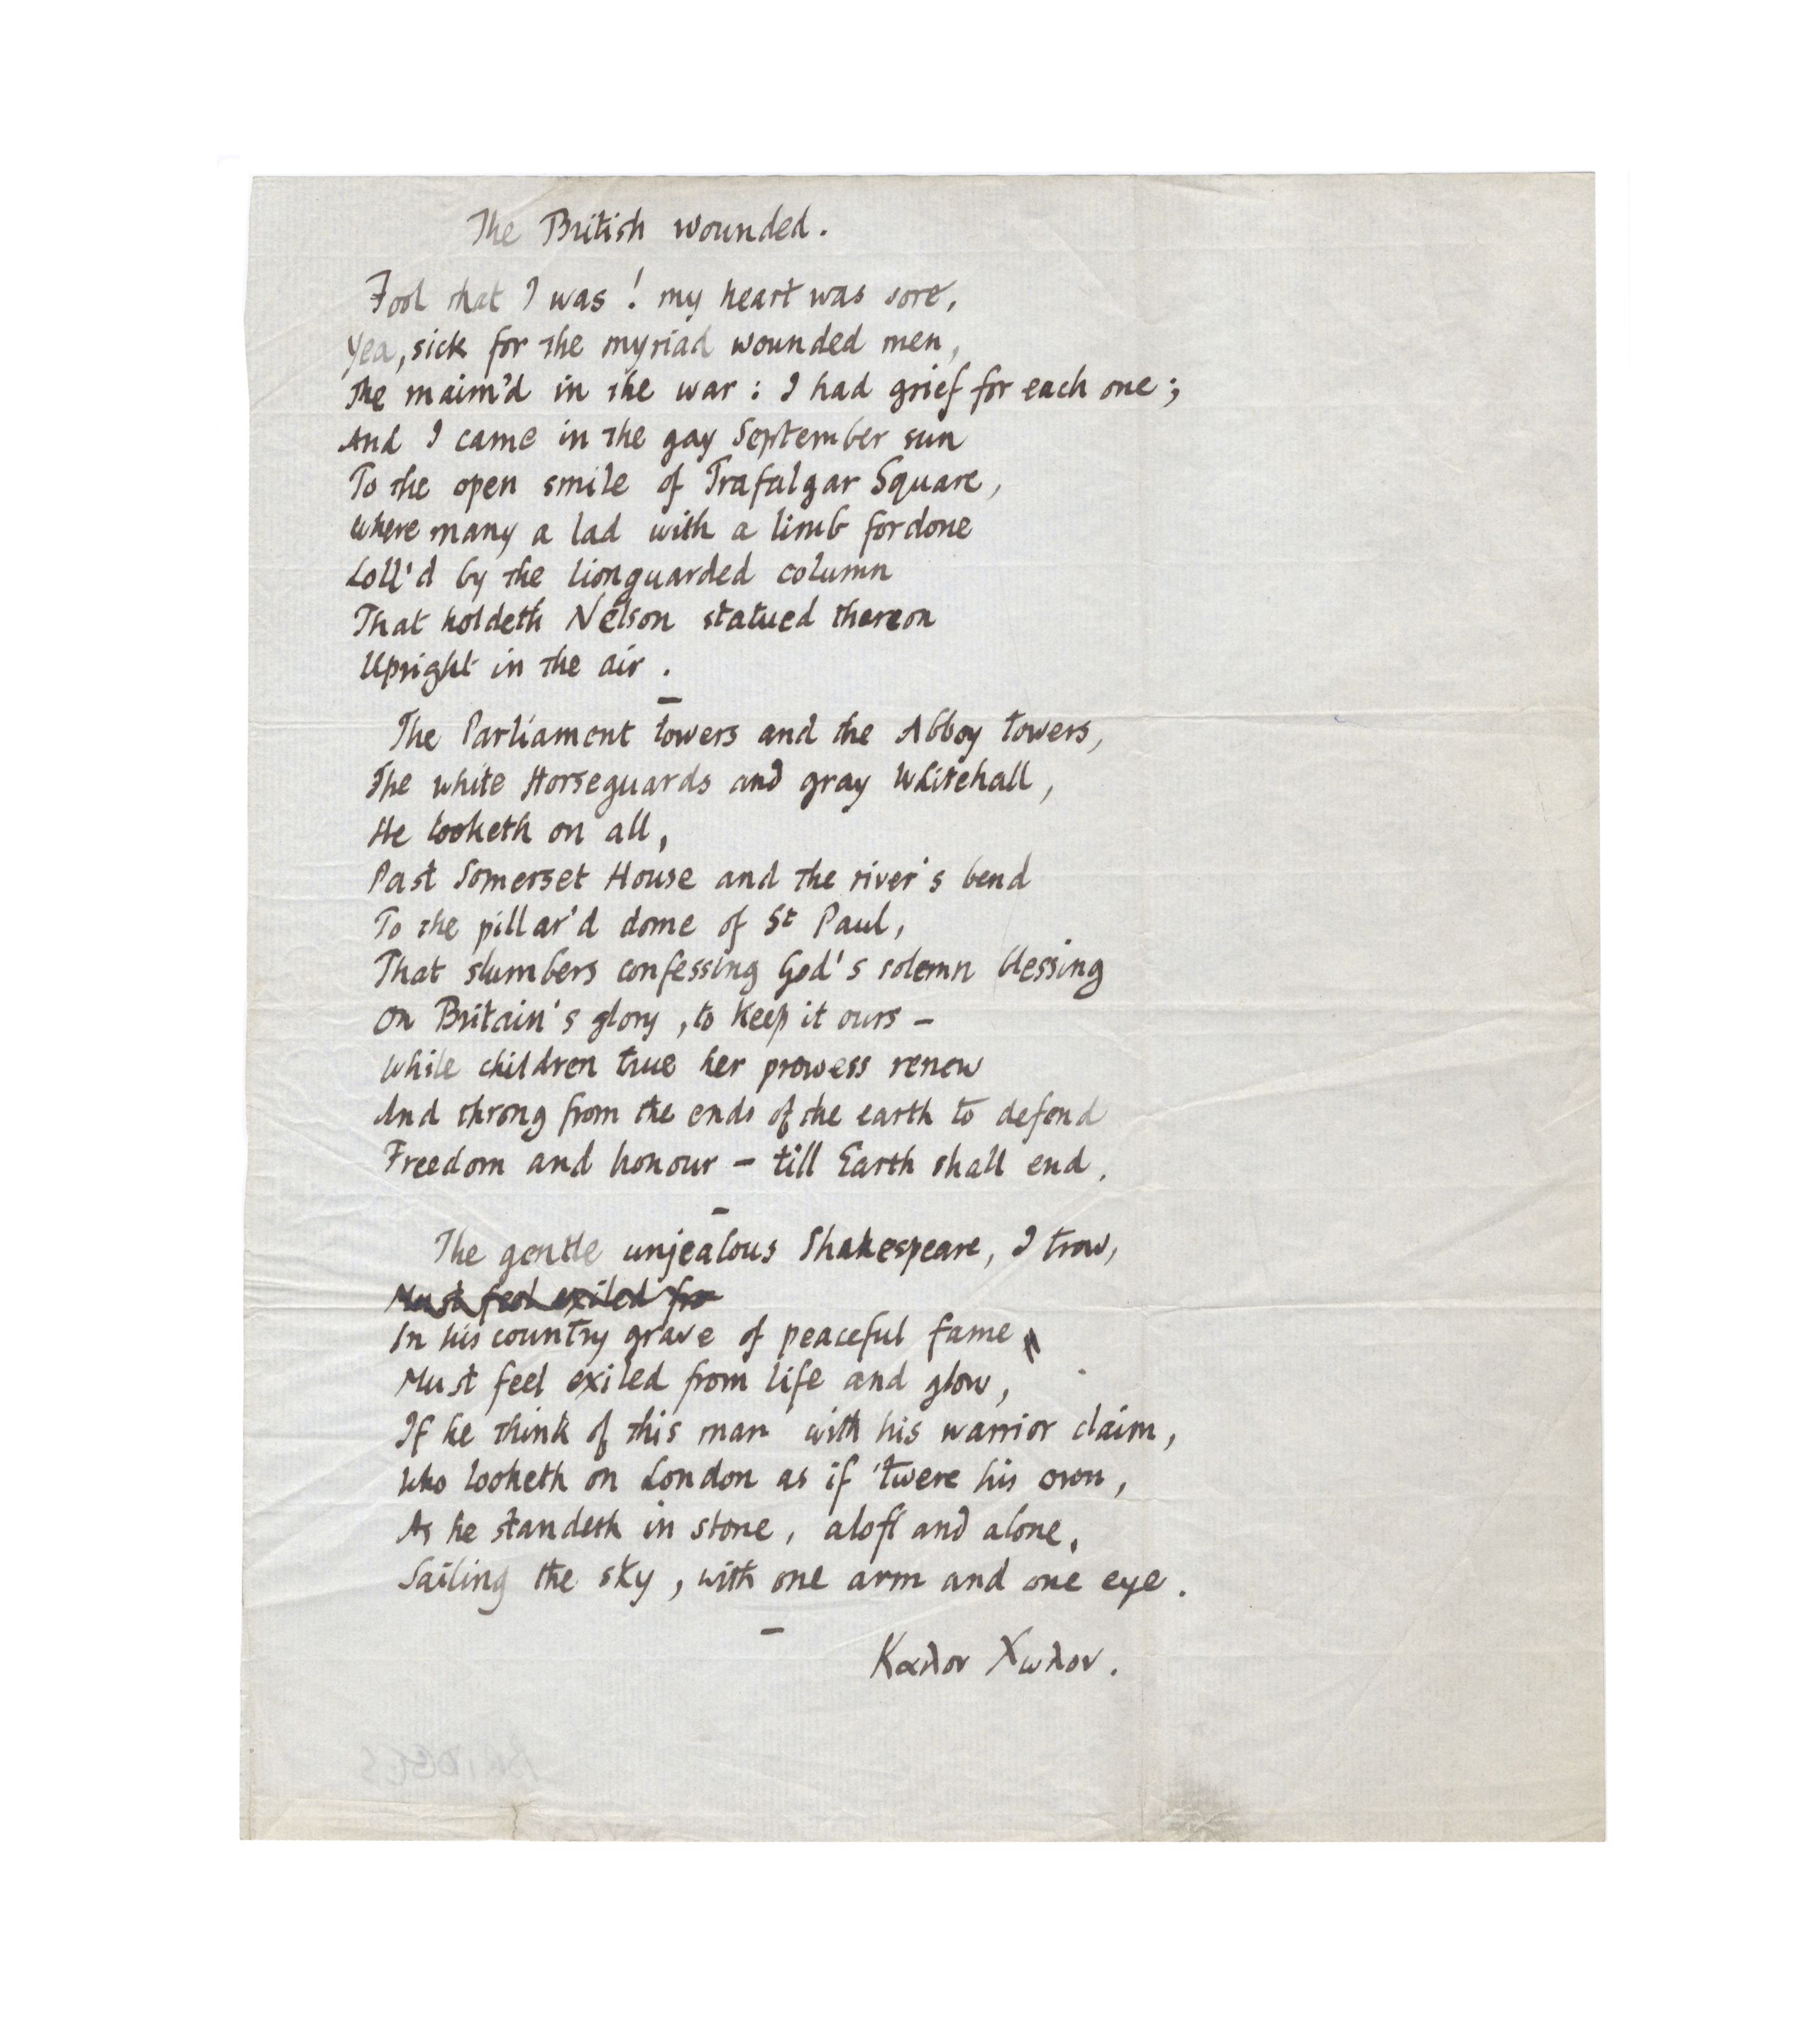 The British wounded.
Fool that I was! my heart was sore,
Yea, sick for the myriad wounded men,
The maim'd in the war: I had grief for each one;
And I came in the gay September sun
To the open smile of Trafalgar Square,
Where many a lad with a limb fordone
Loll'd by the lionguarded column
That holdeth Nelson statued thereon
Upright in the air.
–
The Parliament towers and the Abbey towers,
The white Horseguards and gray Whitehall,
He looketh on all,
Past Somerset House and the river's bend
To the pillar'd dome of St Paul,
That slumbers confessing God's solemn blessing
On Britain's glory, to keep it ours –
While children true her prowess renew
And throng from the ends of the earth to defend
Freedom and honour – till Earth shall end.
–
The gentle unjealous Shakespeare, I trow,
Must feel exiled fro
In his country grave of peaceful fame
Must feel exiled from life and glow,
If he think of this man with his warrior claim,
Who looketh on London as if 'twere his own,
As he standeth in stone, aloft and alone,
Sailing the sky, with one arm and one eye.
–
Καλον Χωλον.
BRIDGES